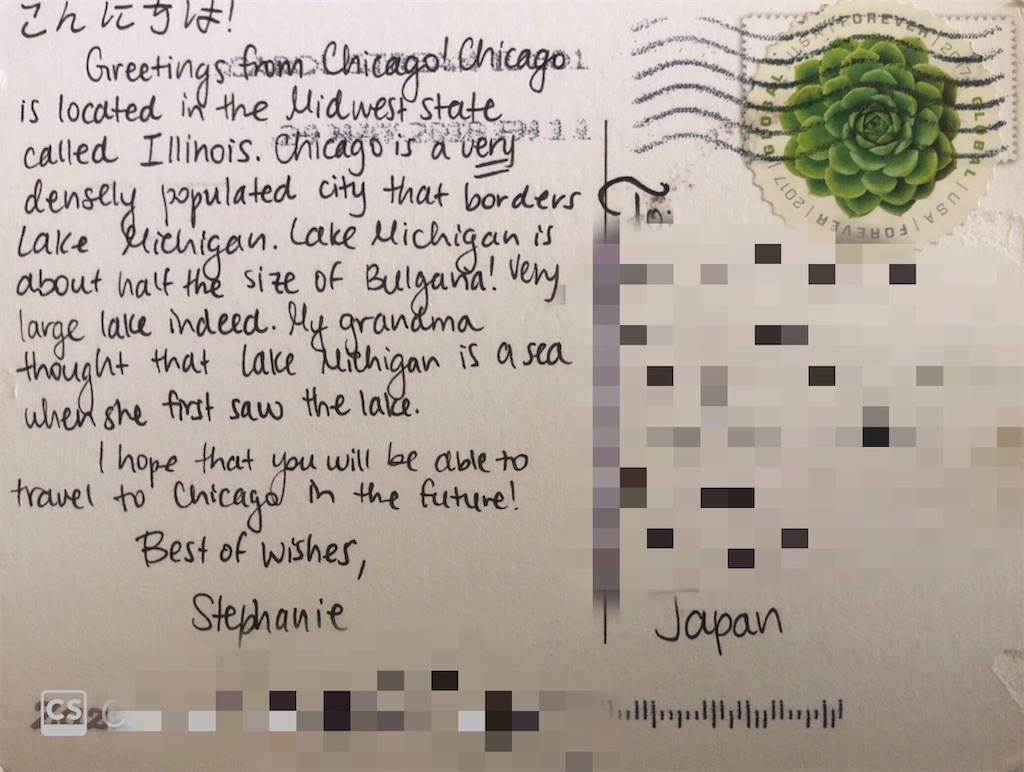 こんにちは!
Greetings from Chicago! Chicago
is located in the Midwest state
called Illinois. Chicago is a very
densely populated city that borders
Lake Michigan. Lake Michigan is
about half the size of Bulgaria! Very
large lake indeed. My grandma
thought that Lake Michigan is a sea
when she first saw the lake.
I hope that you will be able to
travel to Chicago in the future!
Best of wishes,
Stephanie
GLOBAL | USA | FOREVER | 2017 | GLOBAL | USA | FOREVER | 2017
Japan
CS